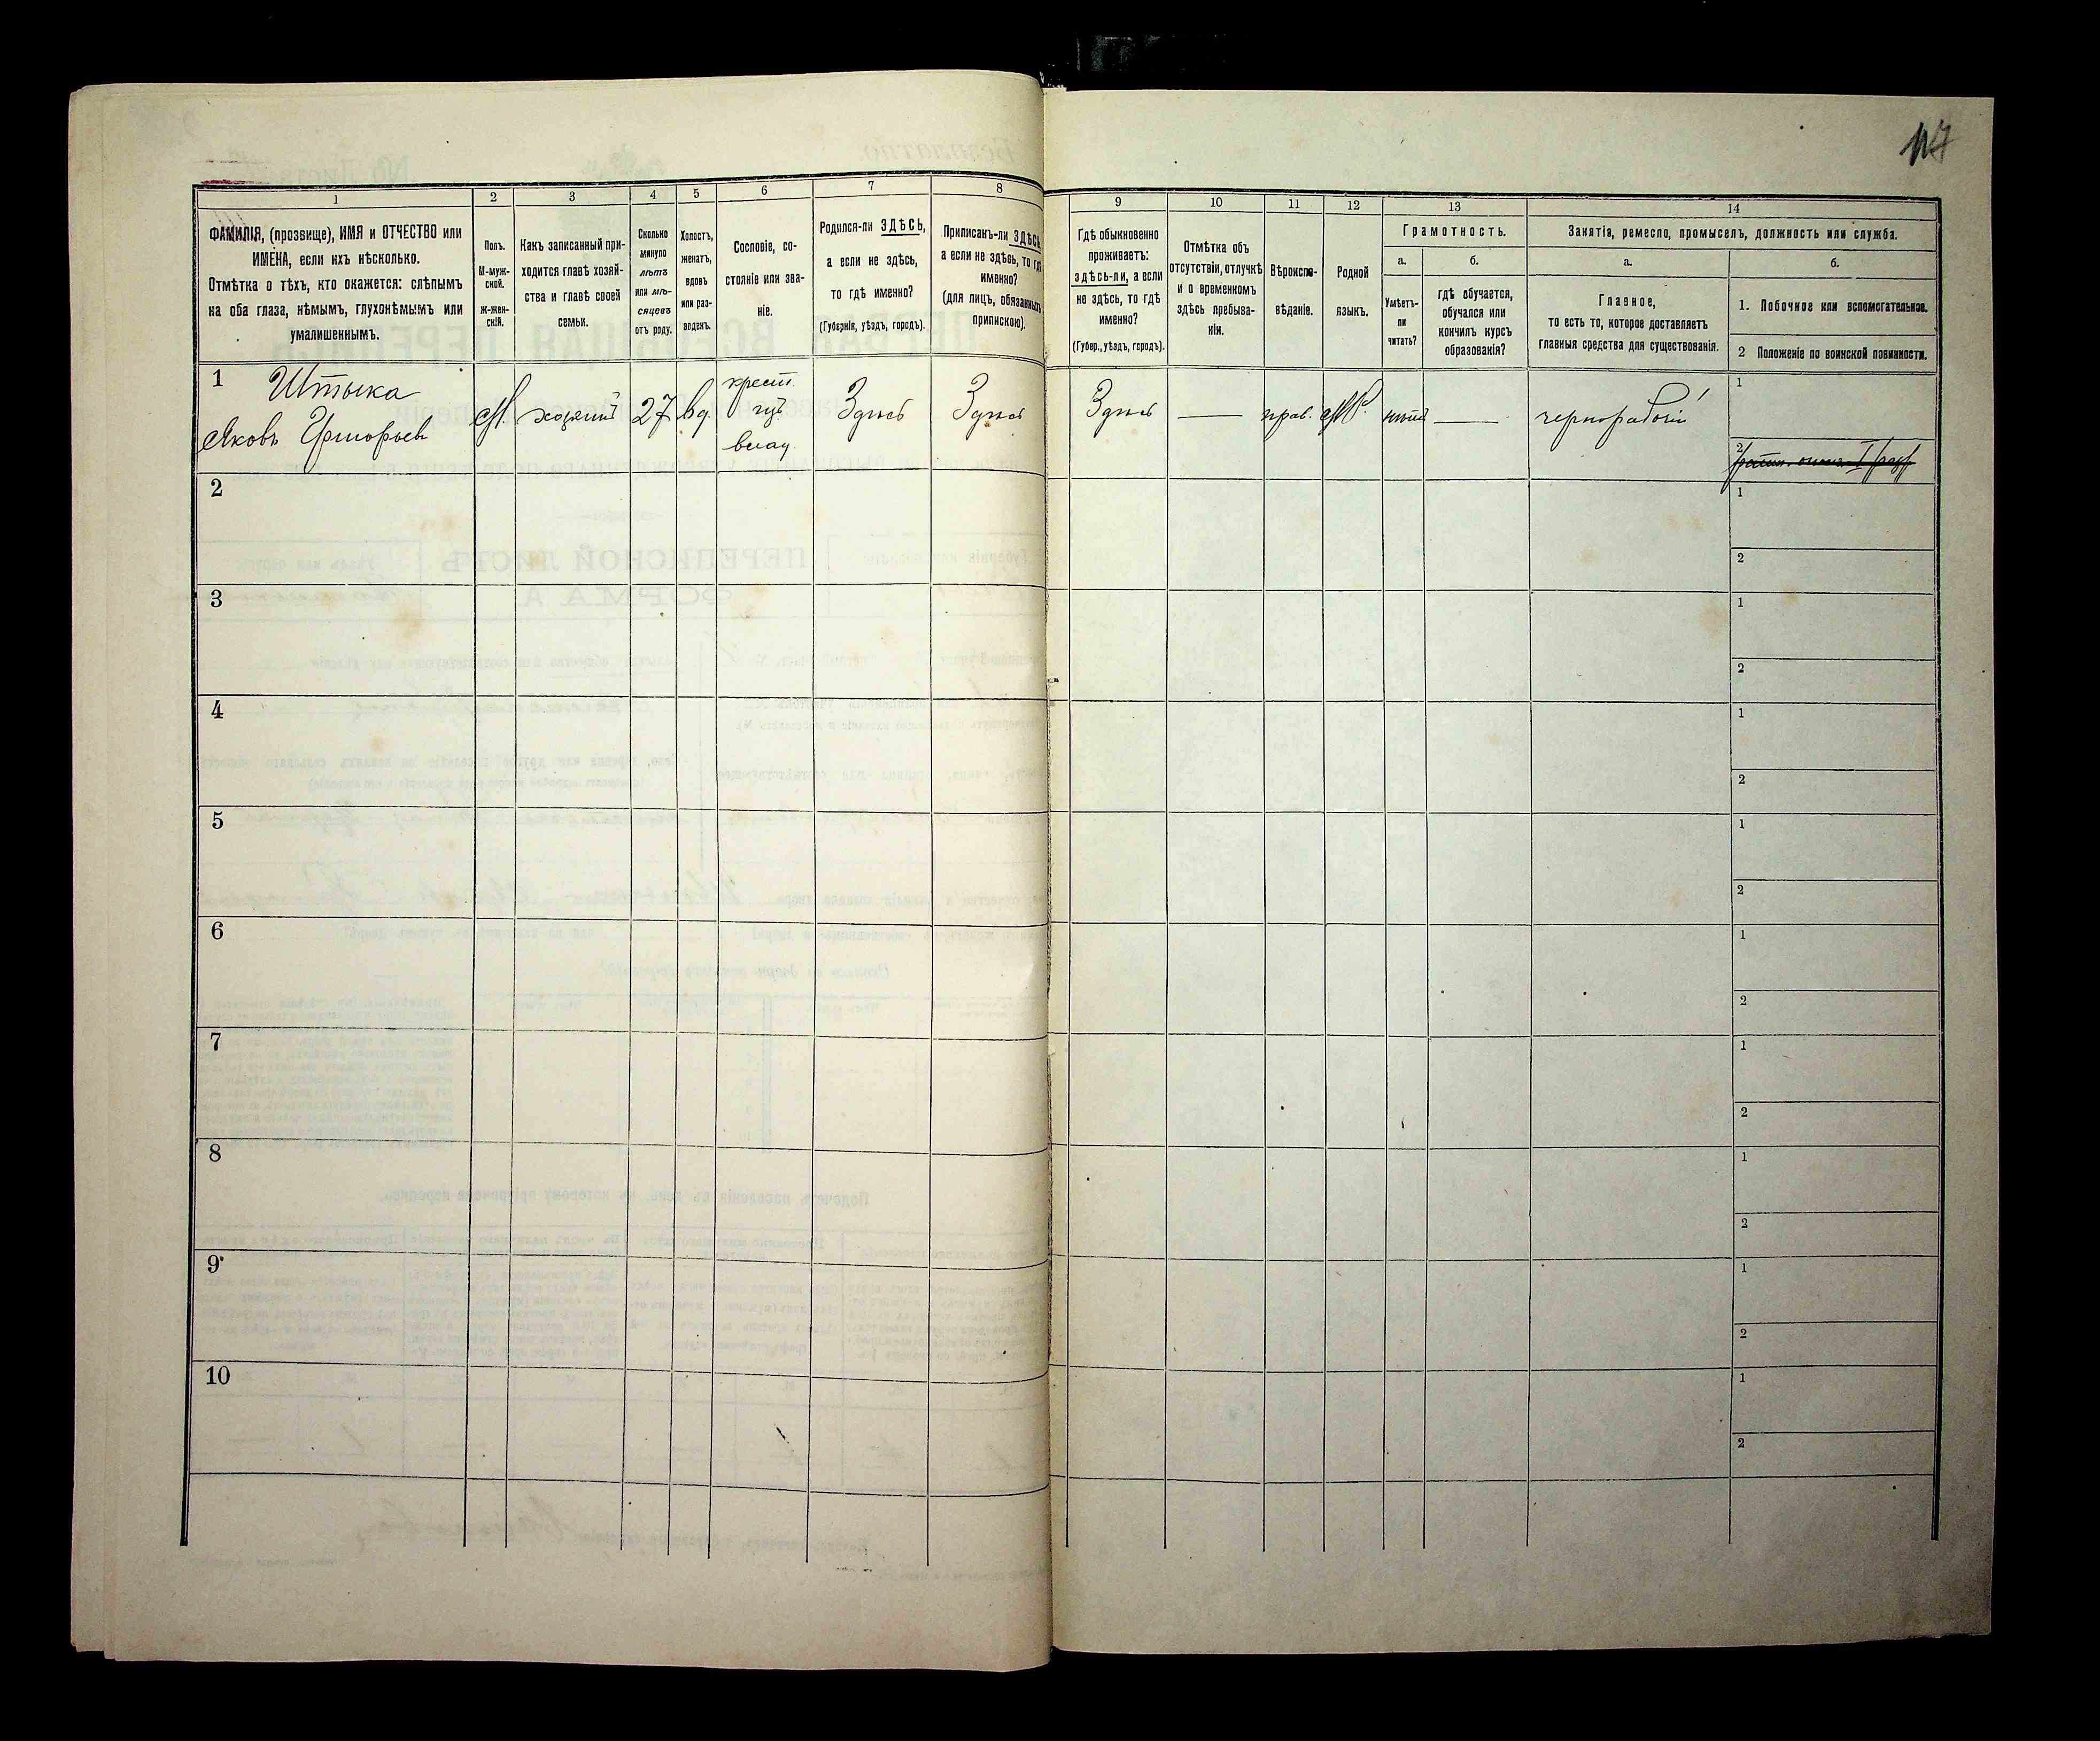 117
1
2
3
4
5
6
7
8
9
10
11
12
13
14
ФАМИЛІЯ, (прозвище), ИМЯ и ОТЧЕСТВО или
ИМЕНА, если ихъ нѣсколько.
Отмѣтка о тѣхъ, кто окажется: слѣпымъ
на оба глаза, нѣмымъ, глухонѣмымъ или
умалишеннымъ.
Полъ.
М-муж-
ской.
Ж-жен-
скій.
Какъ записанный при-
ходится главѣ хозяй-
ства и главѣ своей
семьи.
Сколько
минуло
лѣтъ
или мѣ-
сяцевъ
отъ роду.
Холостъ,
женатъ,
вдовъ
или раз-
веденъ.
Сословіе, со-
стояніе или зва-
ніе.
Родился-ли ЗДѢСЬ,
а если не здѣсь,
то гдѣ именно?
(Губернія, уѣздъ, городъ).
Приписанъ-ли ЗДѢСЬ,
а если не здѣсь, то гдѣ
именно?
(для лицъ, обязанныхъ
припискою).
Гдѣ обыкновенно
проживаетъ:
здѣсь-ли, а если
не здѣсь, то гдѣ
именно?
(Губер., уѣздъ, городъ).
Отмѣтка объ
отсутствіи, отлучкѣ
и о временномъ
здѣсь пребыва-
ніи.
Вѣроиспо-
вѣданіе.
Родной
языкъ.
Грамотность.
а.
Умѣетъ-
ли
читать?
б.
гдѣ обучается,
обучался или
кончилъ курсъ
образованія?
Занятія, ремесло, промыселъ, должность или служба.
а.
Главное,
то есть то, которое доставляетъ
главныя средства для существованія.
б.
1. Побочное или вспомогательное.
2 Положеніе по воинской повинности.
1
Штыка
Яковъ Григорьев
М.
хозяинъ
27
вд.
крест.
влад.
Здѣсь
Здѣсь
Здѣсь
—
прав.
нѣтъ
—
чернорабочій
1
2
2
1
2
3
1
2
4
1
2
5
1
2
6
1
2
7
1
2
8
1
2
9
1
2
10
1
2